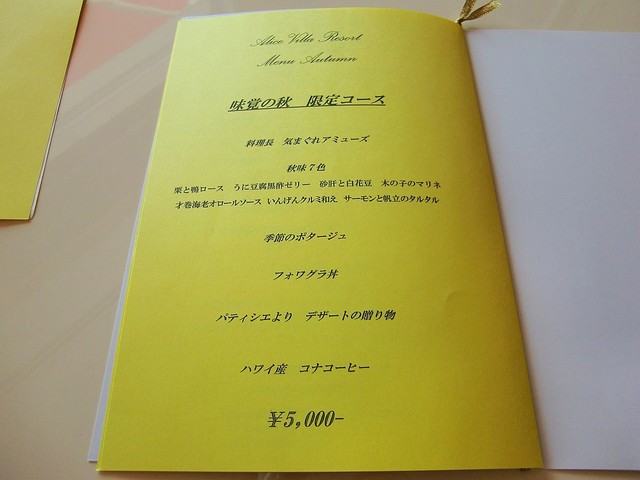 Alice Villa Resort
Menu Autumn
味覚の秋 限定コース
料理長 気まぐれアミューズ
秋味7色
栗と鴨ロース うに豆腐黒酢ゼリー 砂肝と白花豆 木の子のマリネ
才巻海老オロールソース いんげんクルミ和え サーモンと帆立のタルタル
季節のポタージュ
フォワグラ丼
パティシエより デザートの贈り物
ハワイ産 コナコーヒー
¥5,000-